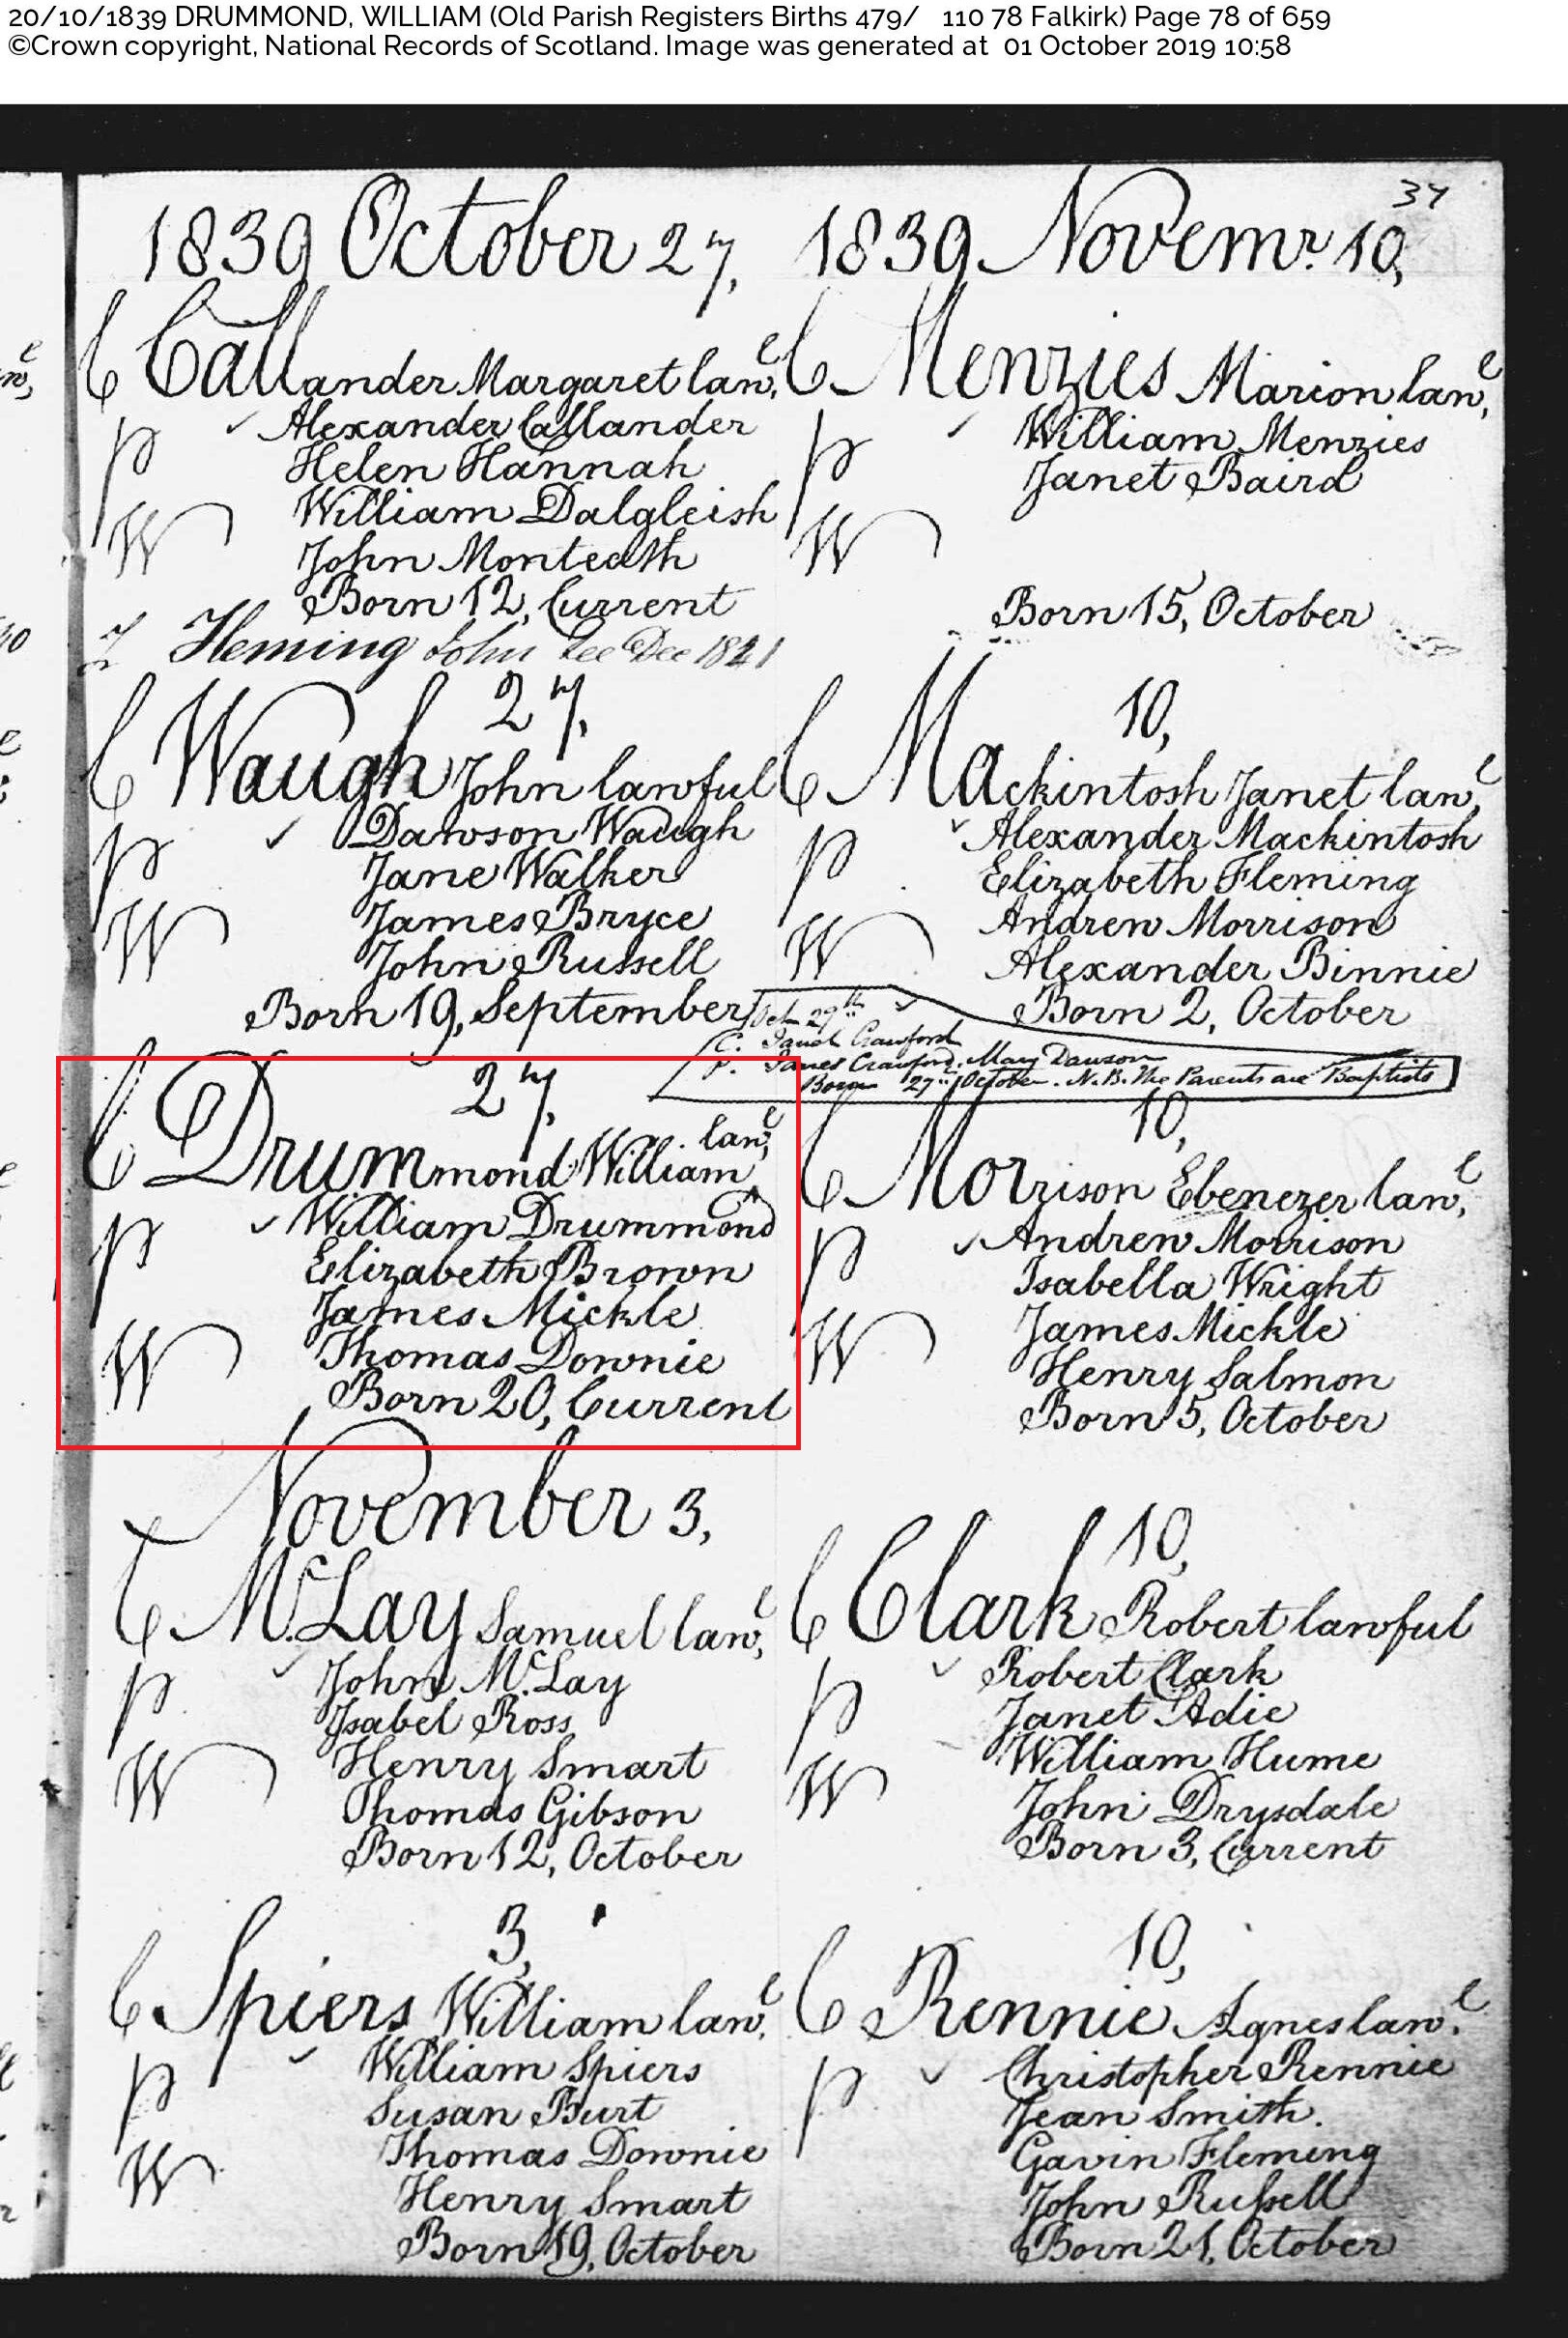 20/10/1839 DRUMMOND, WILLIAM (Old Parish Registers Births 479/ 110 78 Falkirk) Page 78 of 659
©Crown copyright, National Records of Scotland. Image was generated at 01 October 2019 10:58
1839 October 27,
C Callander Margaret law,e
P Alexander Callander
Helen Hannah
William Dalgleish
W John Monteath
Born 12, Current
Fleming John See Dec 1841
27,
C Waugh John lawful
P Dawson Waugh
Jane Walker
W James Bryce
John Russell
Born 19, September
27,
C Drummond William law,e
P William Drummond
Elizabeth Brown
James Mickle
W Thomas Downie
Born 20, Current
November 3,
C McLay Samuel law,e
P John McLay
Isabel Ross
W Henry Smart
Thomas Gibson
Born 12, October
3,
C Spiers William law,e
P William Spiers
Susan Burt
W Thomas Downie
Henry Smart
Born 19, October
34
1839 Novemr. 10,
C Menzies Marion law,e
P William Menzies
Janet Baird
W
Born 15, October
10,
C Mackintosh Janet law,e
P Alexander Mackintosh
Elizabeth Fleming
W Andrew Morrison
Alexander Binnie
Born 2, October
Oct 29th
C. Janet Crawford
P. James Crawford. Mary Dawson
Born 27th October. N.B. The Parents are Baptists
10,
C Morrison Ebenezer law,e
P Andrew Morrison
Isabella Wright
W James Mickle
Henry Salmon
Born 5, October
10,
C Clark Robert lawful
P Robert Clark
Janet Adie
W William Hume
John Drysdale
Born 3, Current
10,
C Rennie Agnes law,e
P Christopher Rennie
Jean Smith.
Gavin Fleming
John Russell
Born 21, October